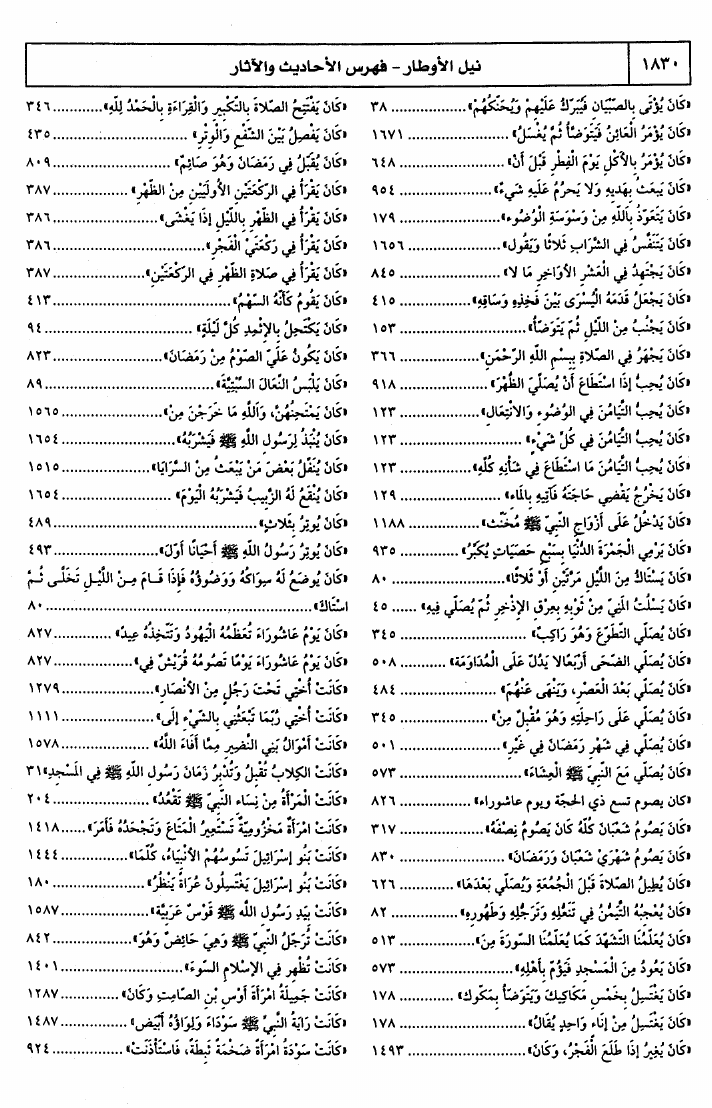 ١٨٣٠
نيل الأوطار - فهرس الأحاديث والآثار
«كَانَ يُؤْتَى بِالصِّبْيَانِ فَيُبَرِّكُ عَلَيْهِمْ وَيُحَنِّكُهُمْ» .................... ٣٨
«كَانَ يُؤْمَرُ الْعَائِنُ فَيَتَوَضَّأُ ثُمَّ يُغْسَلُ» .................... ١٦٧١
«كَانَ يُؤْمَرُ بِالأَكْلِ يَوْمَ الْفِطْرِ قَبْلَ أَنْ» .................... ٦٤٨
«كَانَ يَبْعَثُ بِهَدِيهِ وَلَا يَحْرُمُ عَلَيهِ شَيءٌ» .................... ٩٥٤
«كَانَ يَتَعَوَّذُ بِاللَّهِ مِنْ وَسْوَسَةِ الْوُضُوءِ» .................... ١٧٩
«كَانَ يَتَنَفَّسُ فِي الشَّرَابِ ثَلَاثًا وَيَقُولُ» .................... ١٦٥٦
«كَانَ يَجْتَهِدُ فِي الْعَشْرِ الأَوَاخِرِ مَا لا» .................... ٨٤٥
«كَانَ يَجْعَلُ قَدَمَهُ الْيُسْرَى بَيْنَ فَخِذِهِ وَسَاقِهِ» .................... ٤١٥
«كَانَ يَجْنُبُ مِنَ اللَّيْلِ ثُمَّ يَتَوَضَّأُ» .................... ١٥٣
«كَانَ يَجْهَرُ فِي الصَّلَاةِ بِبِسْمِ اللهِ الرَّحْمَنِ» .................... ٣٦٦
«كَانَ يُحِبُّ إِذَا اسْتَطَاعَ أَنْ يُصَلِّيَ الظُّهْرَ» .................... ٩١٨
«كَانَ يُحِبُّ التَّيَامُنَ فِي الْوُضُوءِ وَالانْتِعَالِ» .................... ١٢٣
«كَانَ يُحِبُّ التَّيَامُنَ فِي كُلِّ شَيْءٍ» .................... ١٢٣
«كَانَ يُحِبُّ التَّيَامُنَ مَا اسْتَطَاعَ فِي شَأْنِهِ كُلِّهِ» .................... ١٢٣
«كَانَ يَخْرُجُ يَقْضِي حَاجَتَهُ فَآتِيهِ بِالمَاءِ» .................... ١٢٩
«كَانَ يَدْخُلُ عَلَى أَزْوَاجِ النَّبِيِّ ﷺ مُخَنَّث» .................... ١١٨٨
«كَانَ يَرْمِي الْجَمْرَةَ الدُّنْيَا بِسَبْعِ حَصَيَاتٍ يُكَبِّرُ» .................... ٩٣٥
«كَانَ يَسْتَاكُ مِنَ اللَّيْلِ مَرَّتَيْنِ أَوْ ثَلاثًا» .................... ٨٠
«كَانَ يَسْلُتُ المَنِيَّ مِنْ ثَوْبِهِ بِعِرْقِ الإِذْخِرِ ثُمَّ يُصَلِّي فِيهِ» ..... ٤٥
«كَانَ يُصَلِّي التَّطَوُّعَ وَهُوَ رَاكِبٌ» .................... ٣٤٥
«كَانَ يُصَلِّي الضُّحَى أَرْبَعًالا يَدُلُّ عَلَى الْمُدَاوَمَةِ» .................... ٥٠٨
«كَانَ يُصَلِّي بَعْدَ الْعَصْرِ، وَيَنْهَى عَنْهُمَ» .................... ٤٨٤
«كَانَ يُصَلِّي عَلَى رَاحِلَتِهِ وَهُوَ مُقْبِلٌ مِنْ» .................... ٣٤٥
«كَانَ يُصَلِّي فِي شَهْرِ رَمَضَانَ فِي غَيْرِ» .................... ٥٠١
«كَانَ يُصَلِّي مَعَ النَّبِيِّ ﷺ الْعِشَاءَ» .................... ٥٧٣
«كان يصوم تسع ذي الحجّة ويوم عاشوراء» .................... ٨٢٦
«كَانَ يَصُومُ شَعْبَانَ كُلَّهُ كَانَ يَصُومُ نِصْفَهُ» .................... ٣١٧
«كَانَ يَصُومُ شَهْرَيْ شَعْبَانَ وَرَمَضَانَ» .................... ٨٣٠
«كَانَ يُطِيلُ الصَّلاةَ قَبْلَ الْجُمُعَةِ وَيُصَلِّي بَعْدَهَا» .................... ٦٢٦
«كَانَ يُعْجِبُهُ التَّيَمُّنُ فِي تَنَعُّلِهِ وَتَرَجُّلِهِ وَطُهُورِهِ» .................... ٨٢
«كَانَ يُعَلِّمُنَا التَّشَهُّدَ كَمَا يُعَلِّمُنَا السُّورَةَ مِنَ» .................... ٥١٣
«كَانَ يَعُودُ مِنَ الْمَسْجِدِ فَيَؤُمُّ بِأَهْلِهِ» .................... ٥٧٣
«كَانَ يَغْتَسِلُ بِخَمْسِ مَكَاكِيكَ وَيَتَوَضَّأُ بِمَكُّوك» .................... ١٧٨
«كَانَ يَغْتَسِلُ مِنْ إِنَاءٍ وَاحِدٍ يُقَالُ» .................... ١٧٨
«كَانَ يُغِيرُ إِذَا طَلَعَ الْفَجْرُ، وَكَانَ» .................... ١٤٩٣
«كَانَ يَفْتَتِحُ الصَّلاةَ بِالتَّكْبِيرِ وَالْقِرَاءَةِ بِالْحَمْدُ لِلَّهِ» ............ ٣٤٦
«كَانَ يَفْصِلُ بَيْنَ الشَّفْعِ وَالْوِتْرِ» .................... ٤٣٥
«كَانَ يُقَبِّلُ فِي رَمَضَانَ وَهُوَ صَائِمٌ» .................... ٨٠٩
«كَانَ يَقْرَأُ فِي الرَّكْعَتَيْنِ الأُولَيَيْنِ مِنَ الظُّهْرِ» .................... ٣٨٧
«كَانَ يَقْرَأُ فِي الظُّهْرِ بِاللَّيْلِ إِذَا يَغْشَى» .................... ٣٨٦
«كَانَ يَقْرَأُ فِي رَكْعَتَيْ الْفَجْرِ» .................... ٣٨٦
«كَانَ يَقْرَأُ فِي صَلاةِ الظُّهْرِ فِي الرَّكْعَتَيْنِ» .................... ٣٨٧
«كَانَ يَقُومُ كَأَنَّهُ السَّهْمُ» .................... ٤١٣
«كَانَ يَكْتَحِلُ بِالإِثْمِدِ كُلَّ لَيْلَةٍ» .................... ٩٤
«كَانَ يَكُونُ عَلَيَّ الصَّوْمُ مِنْ رَمَضَانَ» .................... ٨٢٣
«كَانَ يَلْبَسُ النِّعَالَ السِّبْتِيَّةَ» .................... ٨٩
«كَانَ يَمْتَحِنُهُنَّ، وَاللَّهِ مَا خَرَجْنَ مِنْ» .................... ١٥٦٥
«كَانَ يُنْبَذُ لِرَسُولِ اللَّهِ ﷺ فَيَشْرَبُهُ» .................... ١٦٥٤
«كَانَ يُنَفِّلُ بَعْضَ مَنْ يَبْعَثُ مِنْ السَّرَايَا» .................... ١٥١٥
«كَانَ يُنْقَعُ لَهُ الزَّبِيبُ فَيَشْرَبُهُ الْيَوْمَ» .................... ١٦٥٤
«كَانَ يُوتِرُ بِثَلاثٍ» .................... ٤٨٩
«كَانَ يُوتِرُ رَسُولُ اللهِ ﷺ أَحْيَانًا أَوَّلَ» .................... ٤٩٣
«كَانَ يُوضَعُ لَهُ سِوَاكُهُ وَوَضُوؤُهُ فَإِذَا قَامَ مِنَ اللَّيْلِ تَخَلَّى ثُمَّ
اسْتَاكَ» .................... ٨٠
«كَانَ يَوْمُ عَاشُورَاءَ تُعَظِّمُهُ الْيَهُودُ وَتَتَّخِذُهُ عِيدً» ............ ٨٢٧
«كَانَ يَوْمُ عَاشُورَاءَ يَوْمًا تَصُومُهُ قُرَيْشٌ فِي» ............ ٨٢٧
«كَانَتْ أُخْتِي تَحْتَ رَجُلٍ مِنْ الأَنْصَارِ» .................... ١٢٧٩
«كَانَتْ أُخْتِي رُبَّمَا تَبْعَثُنِي بِالشَّيْءِ إِلَى» .................... ١١١١
«كَانَتْ أَمْوَالُ بَنِي النَّضِيرِ مِمَّا أَفَاءَ اللَّهُ» .................... ١٥٧٨
«كَانَتْ الْكِلابُ تُقْبِلُ وَتُدْبِرُ زَمَانَ رَسُولِ اللهِ ﷺ فِي المَسْجِدِ» ٣١
«كَانَتْ الْمَرْأَةُ مِنْ نِسَاءِ النَّبِيِّ ﷺ تَقْعُدُ» .................... ٢٠٤
«كَانَتْ امْرَأَةٌ مَخْزُومِيَّةٌ تَسْتَعِيرُ الْمَتَاعَ وَتَجْحَدُهُ فَأَمَرَ» ........ ١٤١٨
«كَانَتْ بَنُو إِسْرَائِيلَ تَسُوسُهُمْ الأَنْبِيَاءُ، كُلَّمَا» ............ ١٤٤٤
«كَانَتْ بَنُو إِسْرَائِيلَ يَغْتَسِلُونَ عُرَاةً يَنْظُرُ» ............ ١٨٠
«كَانَتْ بِيَدِ رَسُولِ اللهِ ﷺ قَوْسٌ عَرَبِيَّةٌ» .................... ١٥٨٧
«كَانَتْ تُرَجِّلُ النَّبِيَّ ﷺ وَهِيَ حَائِضٌ وَهُوَ» .................... ٨٤٢
«كَانَتْ تُظْهِرُ فِي الإِسْلامِ السُّوءَ» .................... ١٤٠١
«كَانَتْ جَمِيلَةُ امْرَأَةَ أَوْسِ بْنِ الصَّامِتِ وَكَانَ» ............ ١٢٨٧
«كَانَتْ رَايَةُ النَّبِيِّ ﷺ سَوْدَاءَ وَلِوَاؤُهُ أَبْيَضَ» ............ ١٤٨٧
«كَانَتْ سَوْدَةُ امْرَأَةً ضَخْمَةً ثَبِطَةً، فَاسْتَأْذَنَتْ» ............ ٩٢٤